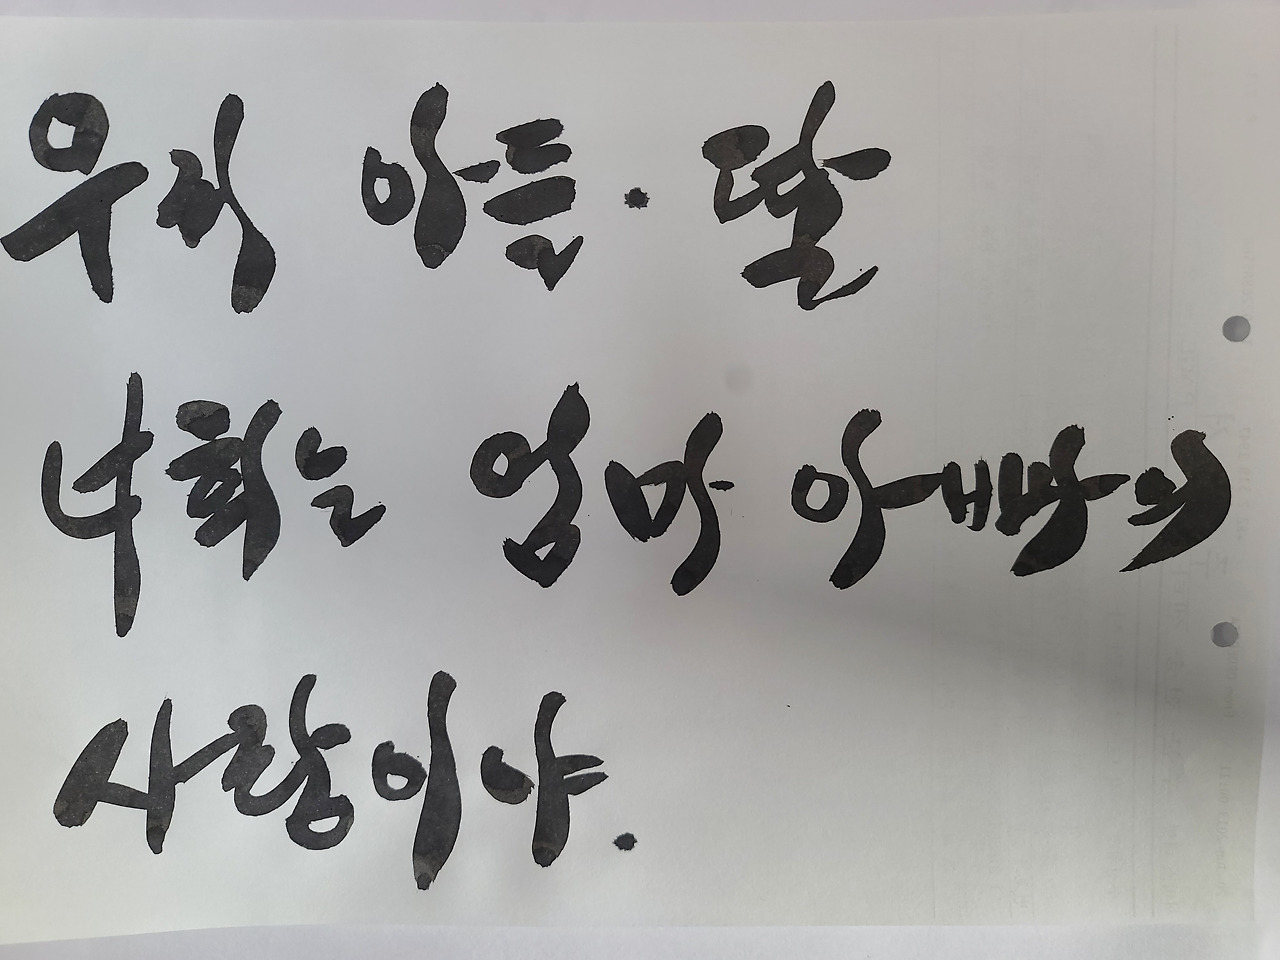 우리 아들·딸
너희는 엄마 아빠의
사랑이야.